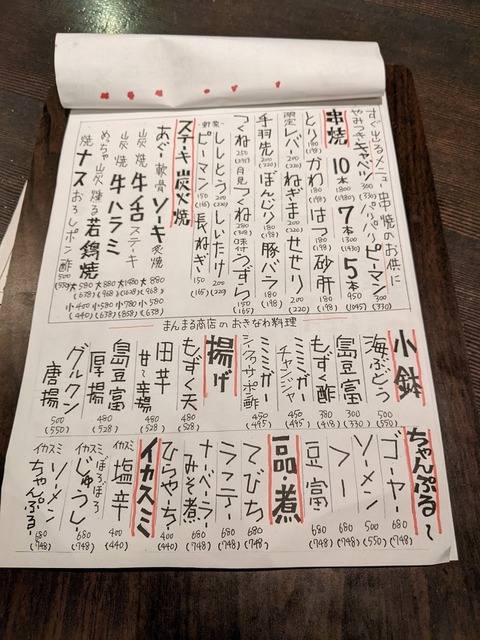 すぐ出るメニュー 串焼のお供に
やみつきキャベツ 300 (330) パリパリピーマン 300 (330)
串焼 10本 1800 (1980) 7本 1300 (1430) 5本 950 (1045)
とり 180 (198) かわ 180 (198) はつ 180 (198) 砂肝 180 (198)
限定 レバー 200 (220) ねぎま 200 (220) せせり 200 (220)
手羽先 200 (220) ぼんじり 180 (198) 豚バラ 180 (198)
つくね 250 月見つくね 280 (308) 味付うずら 150 (165)
ししとう 200 (220) しいたけ 200 (220)
ピーマン 150 (165) 長ねぎ 150 (165)
ステーキ 炭火焼
あぐー軟骨ソーキ炙焼
炭焼 牛舌ステーキ
炭焼 牛ハラミ
めっちゃ炭火燻る 若鶏焼
焼ナス おろしポン酢 500 (550)
まんまる商店のおきなわ料理
小鉢
海ぶどう 500 (550)
島豆富 300 (330)
もずく酢 380 (418)
ミミガーチャンジャ 450 (495)
シークヮーサーポン酢 ミミガー 450 (495)
揚げ
もずく天 480 (528)
田芋甘〜辛揚
島豆富厚揚 480 (528)
グルクン唐揚 500 (550)
ちゃんぷる〜
ゴーヤー 680 (748)
ソーメン 500 (550)
フー 680 (748)
豆富 680 (748)
一品・煮
てびち 680 (748)
ラフテー 680 (748)
ナーベーラーみそ煮 680 (748)
ひらやーちー 400 (440)
イカスミ
イカスミ 塩辛 400 (440)
イカスミ ぼろぼろじゅうしぃ 680 (748)
イカスミ ソーメンちゃんぷるー 680 (748)